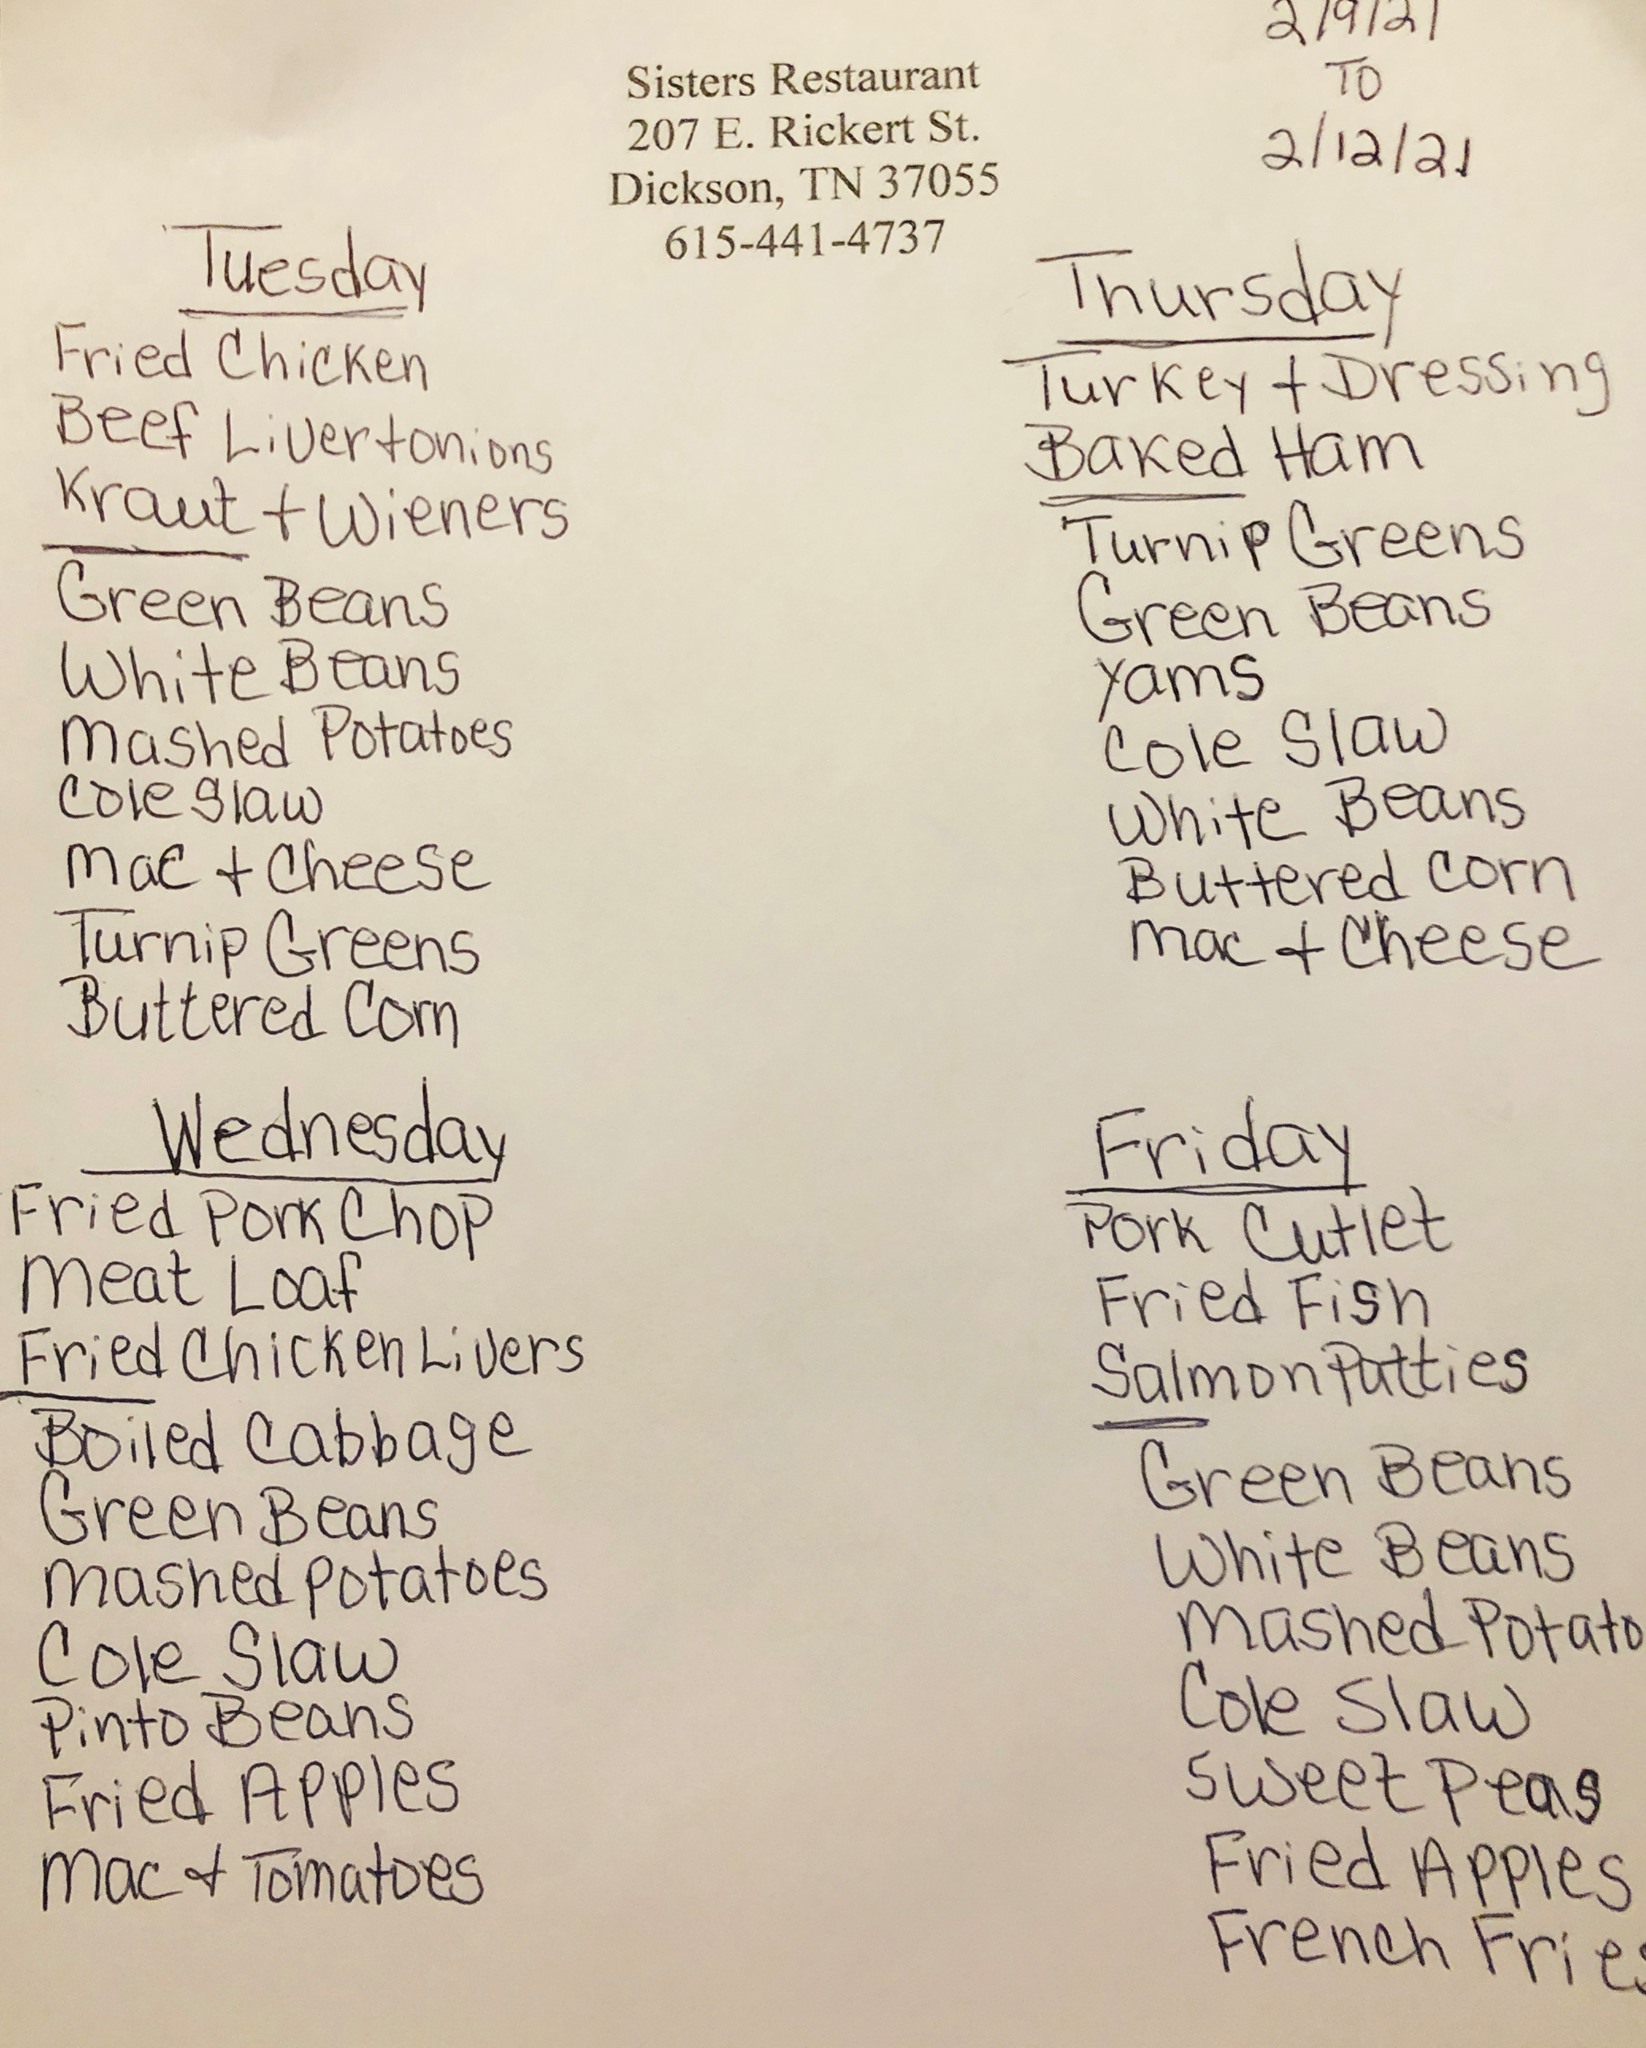 2/9/21
TO
2/12/21
Sisters Restaurant
207 E. Rickert St.
Dickson, TN 37055
615-441-4737
Tuesday
Fried Chicken
Beef Liver + onions
Kraut + Wieners
Green Beans
White Beans
Mashed Potatoes
Cole Slaw
Mac + Cheese
Turnip Greens
Buttered Corn
Wednesday
Fried Pork Chop
Meat Loaf
Fried Chicken Livers
Boiled Cabbage
Green Beans
Mashed Potatoes
Cole Slaw
Pinto Beans
Fried Apples
Mac + Tomatoes
Thursday
Turkey + Dressing
Baked Ham
Turnip Greens
Green Beans
Yams
Cole Slaw
White Beans
Buttered Corn
Mac + Cheese
Friday
Pork Cutlet
Fried Fish
Salmon Patties
Green Beans
White Beans
Mashed Potato
Cole Slaw
Sweet Peas
Fried Apples
French Fries